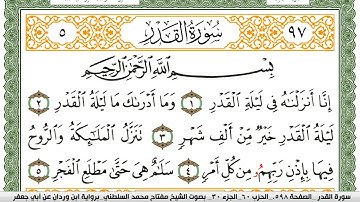 ٩٧ سُورَةُ القَدْرِ ٥
بِسْمِ اللَّهِ الرَّحْمَٰنِ الرَّحِيمِ
إِنَّا أَنزَلْنَٰهُ فِي لَيْلَةِ الْقَدْرِ ١ وَمَا أَدْرَىٰكَ مَا لَيْلَةُ الْقَدْرِ ٢
لَيْلَةُ الْقَدْرِ خَيْرٌ مِنْ أَلْفِ شَهْرٍ ٣ تَنَزَّلُ الْمَلَٰٓئِكَةُ وَالرُّوحُ
فِيهَا بِإِذْنِ رَبِّهِمُ مِن كُلِّ أَمْرٍ ٤ سَلَٰمٌ هِيَ حَتَّىٰ مَطْلَعِ الْفَجْرِ ٥
سورة القدر الصفحة ٥٩٨ـ الحزب ٦٠ الجزء ٣٠ـ بصوت الشيخ مفتاح محمد السلطني برواية ابن وردان عن أبي جعفر